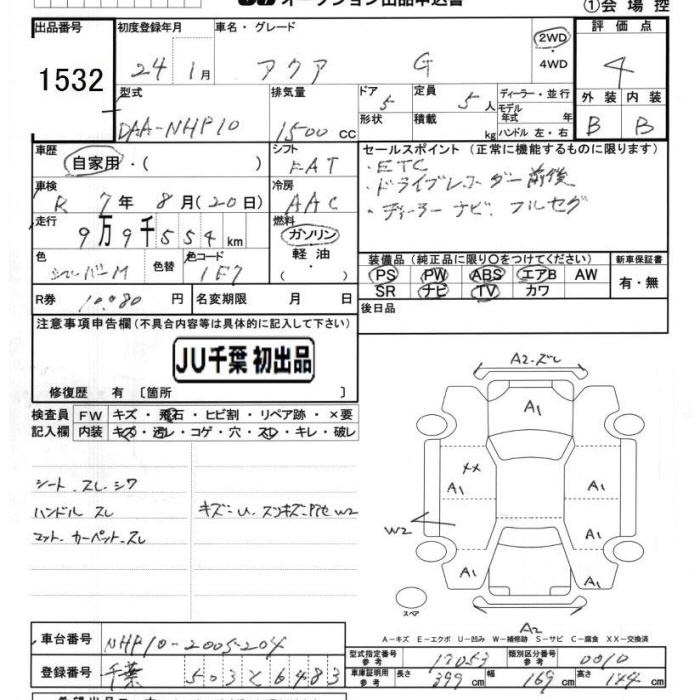 オークション出品申込書
①会場控
出品番号 初度登録年月 車名・グレード 評価点
1532 24 1月 アクア G 2WD ・ 4WD 4
型式 排気量 ドア 5 定員 5人 ディーラー・並行 外装 内装
DAA-NHP10 1500cc 形状 積載 kg モデル年式 年式 ハンドル 左・右 B B
車歴 自家用・( ) シフト FAT セールスポイント(正常に機能するものに限ります)
・ETC
・ドライブレコーダー前後
・ディーラーナビ、フルセグ
車検 R 7年 8月(20日) 冷房 AAC
走行 9万9千554km 燃料 ガソリン・軽油・( )
色 シルバーM 色替 色コード 1F7
装備品(純正品に限り○をつけてください) 新車保証書
PS PW ABS エアB AW 有・無
SR ナビ TV カワ
R券 10,080円 名変期限 月 日 後日品
注意事項申告欄(不具合内容等は具体的に記入して下さい)
JU千葉 初出品
修復歴 有〔箇所 〕
検査員記入欄 FW キズ・飛石・ヒビ割・リペア跡・×要
内装 キズ・汚レ・コゲ・穴・スレ・キレ・破レ
シート スレ シワ
ハンドル スレ
マット、カーペット スレ
キズ=U、スンキズ
W2
A2・ズレ
A1
XX
A1 A1
W2
A1 A1
スペア
A2
A-キズ E-エクボ U-凹み W-補修跡 S-サビ C-腐食 XX-交換済
車台番号 NHP10-2005204
登録番号 千葉 503 と 6483
型式指定番号 参考 17053 類別区分番号 参考 0010
車車証明用 参考 長さ 399cm 幅 169cm 高さ 144cm